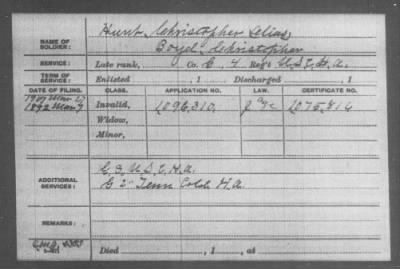 NAME OF SOLDIER: Hunt, Christopher Alias
Boyd, Christopher
SERVICE: Late rank, Co. C, 4 Reg't U.S.C.H.A.
TERM OF SERVICE: Enlisted , 1 Discharged , 1
DATE OF FILING. CLASS. APPLICATION NO. LAW. CERTIFICATE NO.
1892 Mar 7 Invalid, 1096,310 1075,816
Widow,
Minor,
ADDITIONAL SERVICES: G 3 U.S.C.H.A.
G 2" Tenn Cold H.A.
REMARKS:
Died , 1 , at